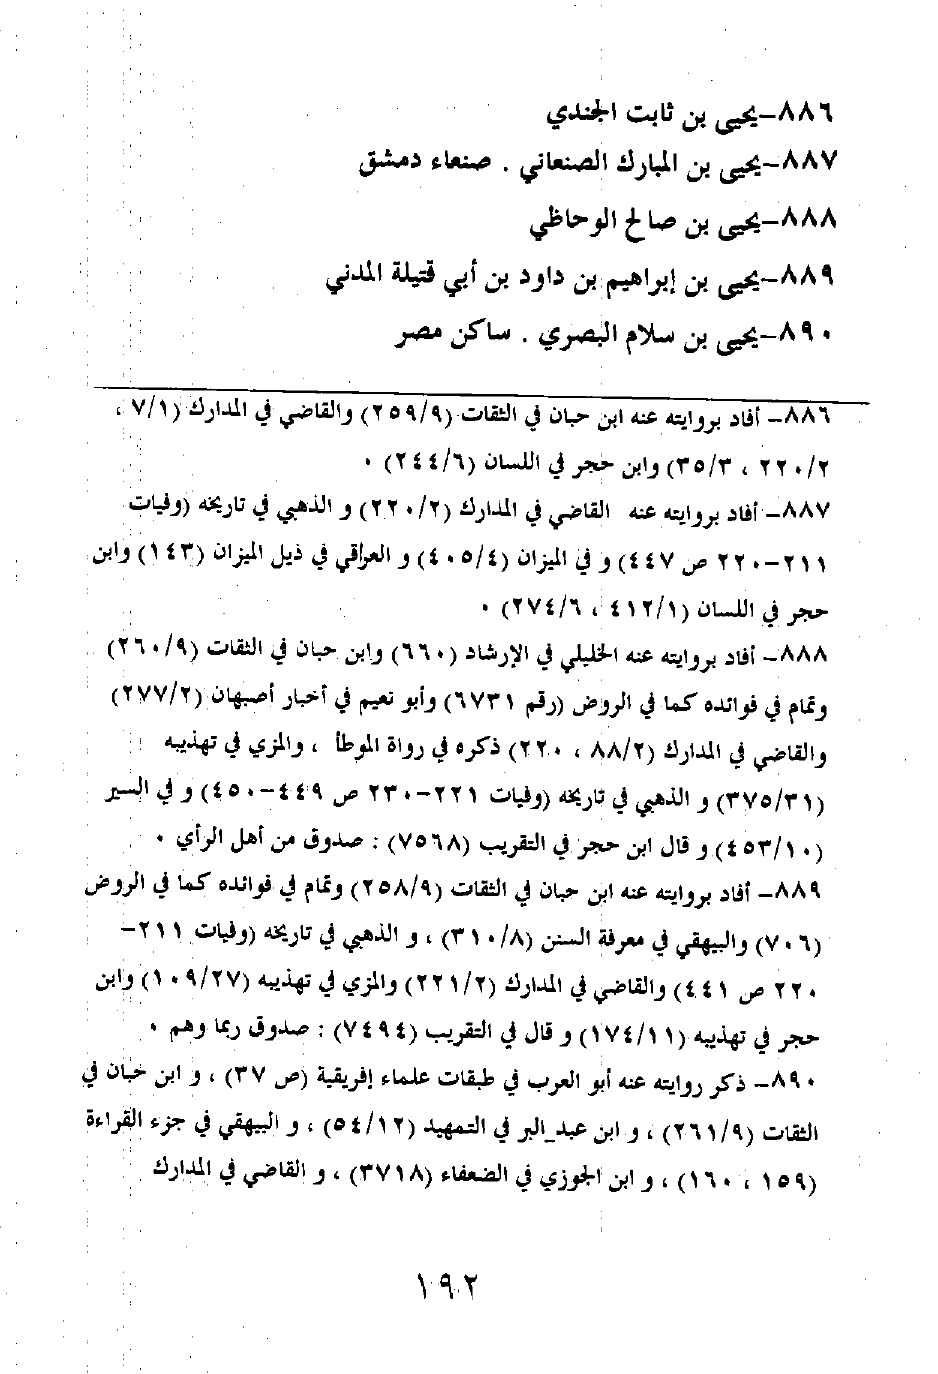 ٨٨٦–يحيى بن ثابت الجندي
٨٨٧–يحيى بن المبارك الصنعاني . صنعاء دمشق
٨٨٨–يحيى بن صالح الوحاظي
٨٨٩–يحيى بن إبراهيم بن داود بن أبي قتيلة المدني
٨٩٠–يحيى بن سلام البصري . ساكن مصر
٨٨٦– أفاد بروايته عنه ابن حبان في الثقات (٢٥٩/٩) والقاضي في المدارك (٧/١ ،
٢٢٠/٢ ، ٣٥/٣) وابن حجر في اللسان (٢٤٤/٦) ٠
٨٨٧– أفاد بروايته عنه القاضي في المدارك (٢٢٠/٢) و الذهبي في تاريخه (وفيات
٢١١–٢٢٠ ص ٤٤٧) و في الميزان (٤٠٥/٤) و العراقي في ذيل الميزان (١٤٣) وابن
حجر في اللسان (٤١٢/١ ، ٢٧٤/٦) ٠
٨٨٨– أفاد بروايته عنه الخليلي في الإرشاد (٦٦٠) وابن حبان في الثقات (٢٦٠/٩)
وتمام في فوائده كما في الروض (رقم ٦٧٣١) وأبو نعيم في أخبار أصبهان (٢٧٧/٢)
والقاضي في المدارك (٨٨/٢ ، ٢٢٠) ذكره في رواة الموطأ ، والمزي في تهذيبه
(٣٧٥/٣١) و الذهبي في تاريخه (وفيات ٢٢١–٢٣٠ ص ٤٤٩–٤٥٠) و في السير
(٤٥٣/١٠) و قال ابن حجر في التقريب (٧٥٦٨) : صدوق من أهل الرأي ٠
٨٨٩– أفاد بروايته عنه ابن حبان في الثقات (٢٥٨/٩) وتمام في فوائده كما في الروض
(٧٠٦) والبيهقي في معرفة السنن (٣١٠/٨) ، و الذهبي في تاريخه (وفيات ٢١١–
٢٢٠ ص ٤٤١) والقاضي في المدارك (٢٢١/٢) والمزي في تهذيبه (١٠٩/٢٧) وابن
حجر في تهذيبه (١٧٤/١١) و قال في التقريب (٧٤٩٤) : صدوق ربما وهم ٠
٨٩٠– ذكر روايته عنه أبو العرب في طبقات علماء إفريقية (ص ٣٧) ، و ابن حبان في
الثقات (٢٦١/٩) ، و ابن عبد_البر في التمهيد (٥٤/١٢) ، و البيهقي في جزء القراءة
(١٥٩ ، ١٦٠) ، و ابن الجوزي في الضعفاء (٣٧١٨) ، و القاضي في المدارك
١٩٢